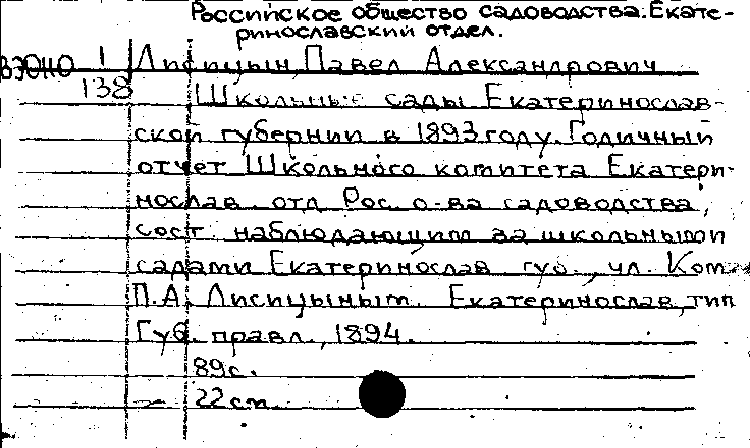 Российское общество садоводства. Екате-
ринославский отдел.
ВЭОНО 1 Лисицын, Павел Александрович
138 Школьные сады Екатеринослав-
ской губернии в 1893 году. Годичный
отчет Школьного комитета Екатери-
нослав. отд. Рос. о-ва садоводства,
сост. наблюдающим за школьными
садами Екатеринослав. губ., чл. Ком.
П.А. Лисицыным. Екатеринослав, тип.
Губ. правл., 1894.
89 с.
22 см.